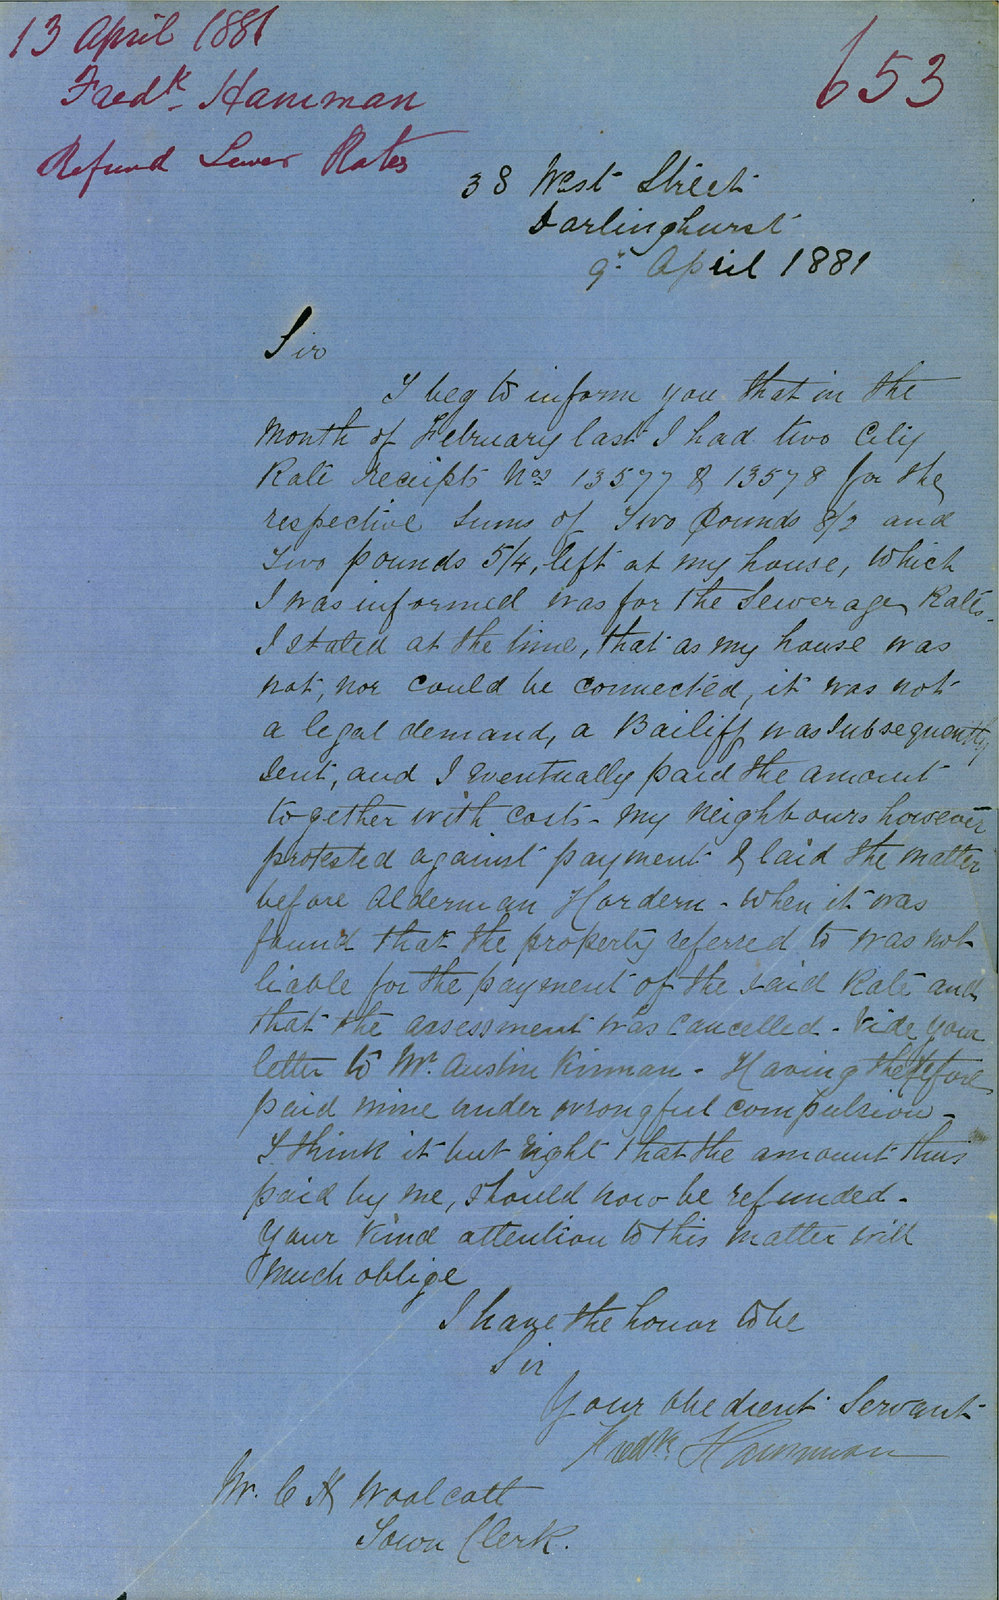 13 April 1881
Fredk. Hamman
Refund Sewer Rates
653
38 West Street
Darlinghurst
9th April 1881
Sir
I beg to inform you that in the
Month of February last I had two City
Rate receipts Nos 13577 & 13578 for the
respective sums of Two Pounds 8/2 and
Two pounds 5/4, left at my house, which
I was informed was for the Sewerage Rates.
I stated at the time, that as my house was
not, nor could be connected, it was not
a legal demand, a Bailiff was subsequently
sent, and I eventually paid the amount
together with costs - My neighbours however
protested against payment & laid the matter
before Alderman Hordern - when it was
found that the property referred to was not
liable for the payment of the said Rate and
that the assessment was cancelled - Vide your
letter to Mr. Austin Kinman - Having therefore
paid mine under wrongful compulsion -
I think it but right that the amount thus
paid by me, should now be refunded -
Your kind attention to this matter will
much oblige
I have the honor to be
Sir
Your obedient Servant
Fredk. Hamman
Mr. C H Woolcott
Town Clerk.